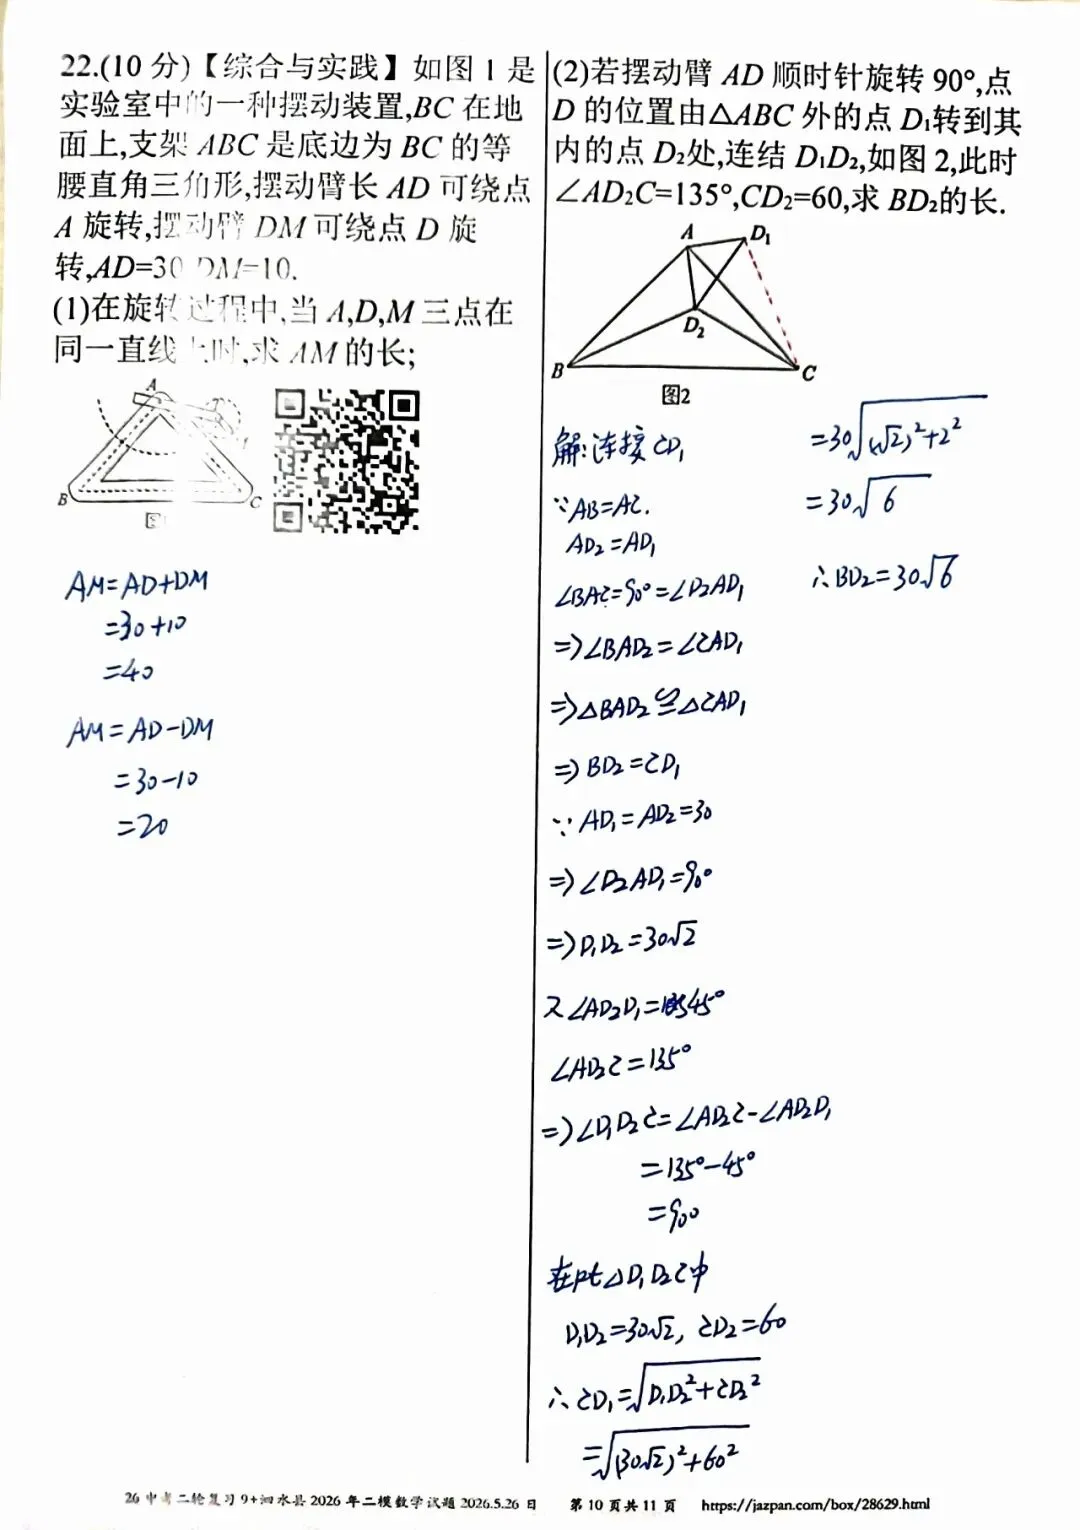 22.(10 分)【综合与实践】如图 1 是
实验室中的一种摆动装置,BC 在地
面上,支架 ABC 是底边为 BC 的等
腰直角三角形,摆动臂长 AD 可绕点
A 旋转,摆动臂 DM 可绕点 D 旋
转,AD=30,DM=10.
(1)在旋转过程中,当 A,D,M 三点在
同一直线上时,求 AM 的长;
A
B
C
图1
AM=AD+DM
=30+10
=40
AM=AD-DM
=30-10
=20
(2)若摆动臂 AD 顺时针旋转 90°,点
D 的位置由△ABC 外的点 D₁转到其
内的点 D₂处,连结 D₁D₂,如图 2,此时
∠AD₂C=135°,CD₂=60,求 BD₂的长.
A
D₁
D₂
B
C
图2
解:连接CD₁
∵AB=AC.
AD₂=AD₁
∠BAC=90°=∠D₂AD₁
⇒∠BAD₂=∠CAD₁
⇒△BAD₂≌△CAD₁
⇒BD₂=CD₁
∵AD₁=AD₂=30
⇒∠D₂AD₁=90°
⇒D₁D₂=30√2
又∠AD₂D₁=45°
∠AD₂C=135°
⇒∠D₁D₂C=∠AD₂C-∠AD₂D₁
=135°-45°
=90°
在Rt△D₁D₂C中
D₁D₂=30√2, CD₂=60
∴CD₁=√(D₁D₂²+CD₂²)
=√((30√2)²+60²)
=30√((√2)²+2²)
=30√6
∴BD₂=30√6
26 中考二轮复习 9+泗水县 2026 年二模数学试题 2026.5.26 日 第 10 页共 11 页 https://jazpan.com/box/28629.html